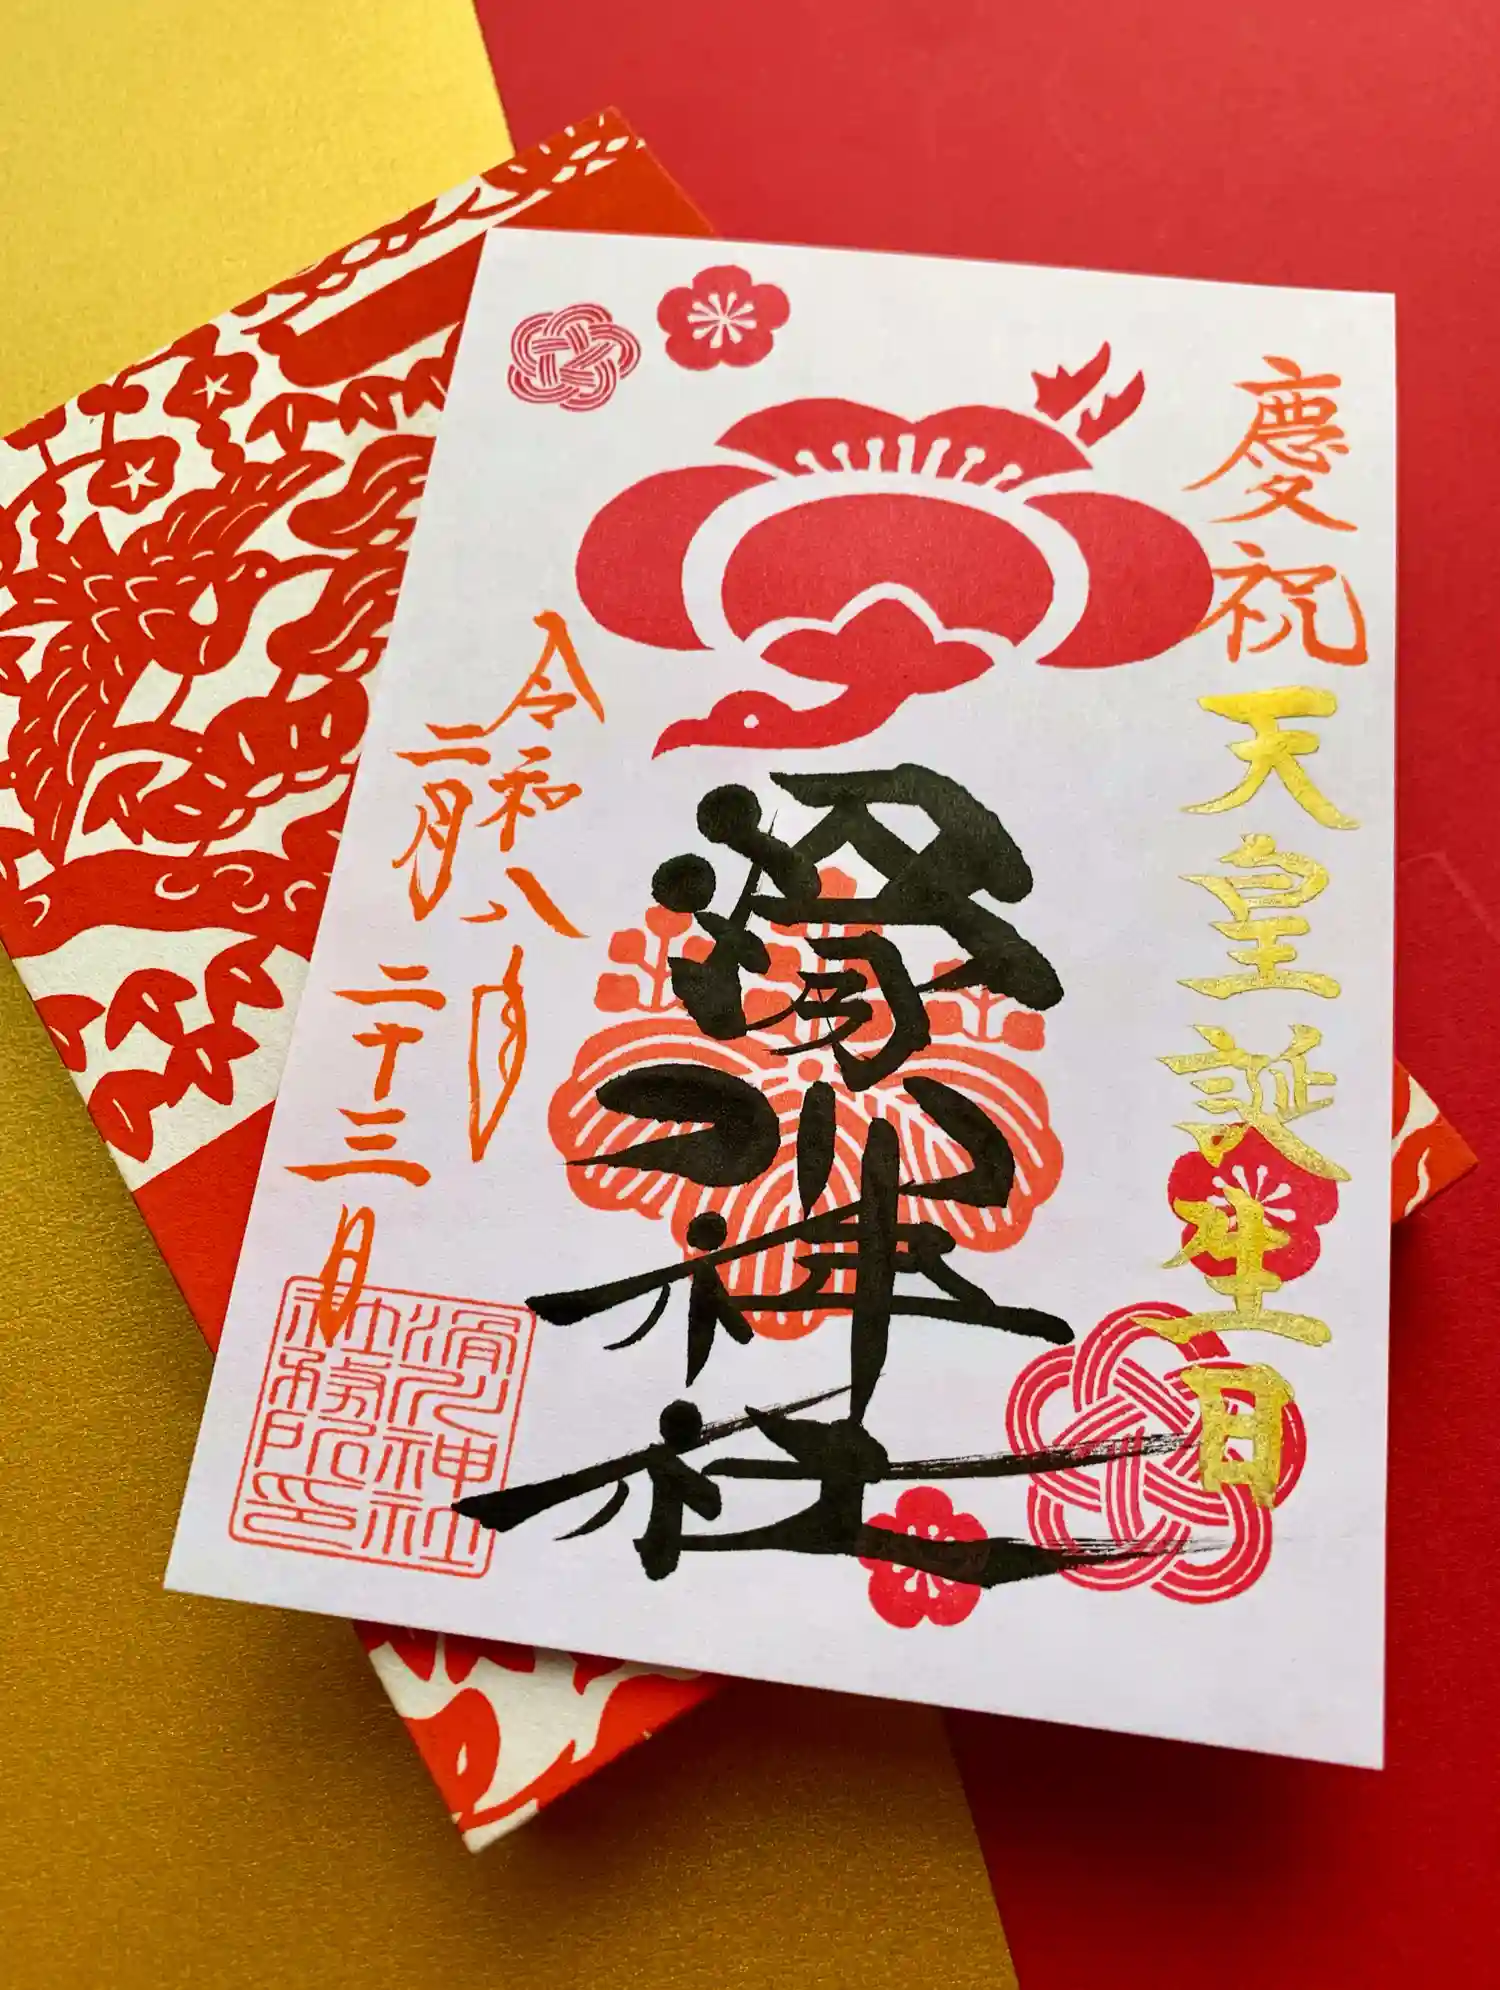 慶祝
天皇誕生日
滑川神社
令和八年
二月二十三日
滑川神社
社務所印